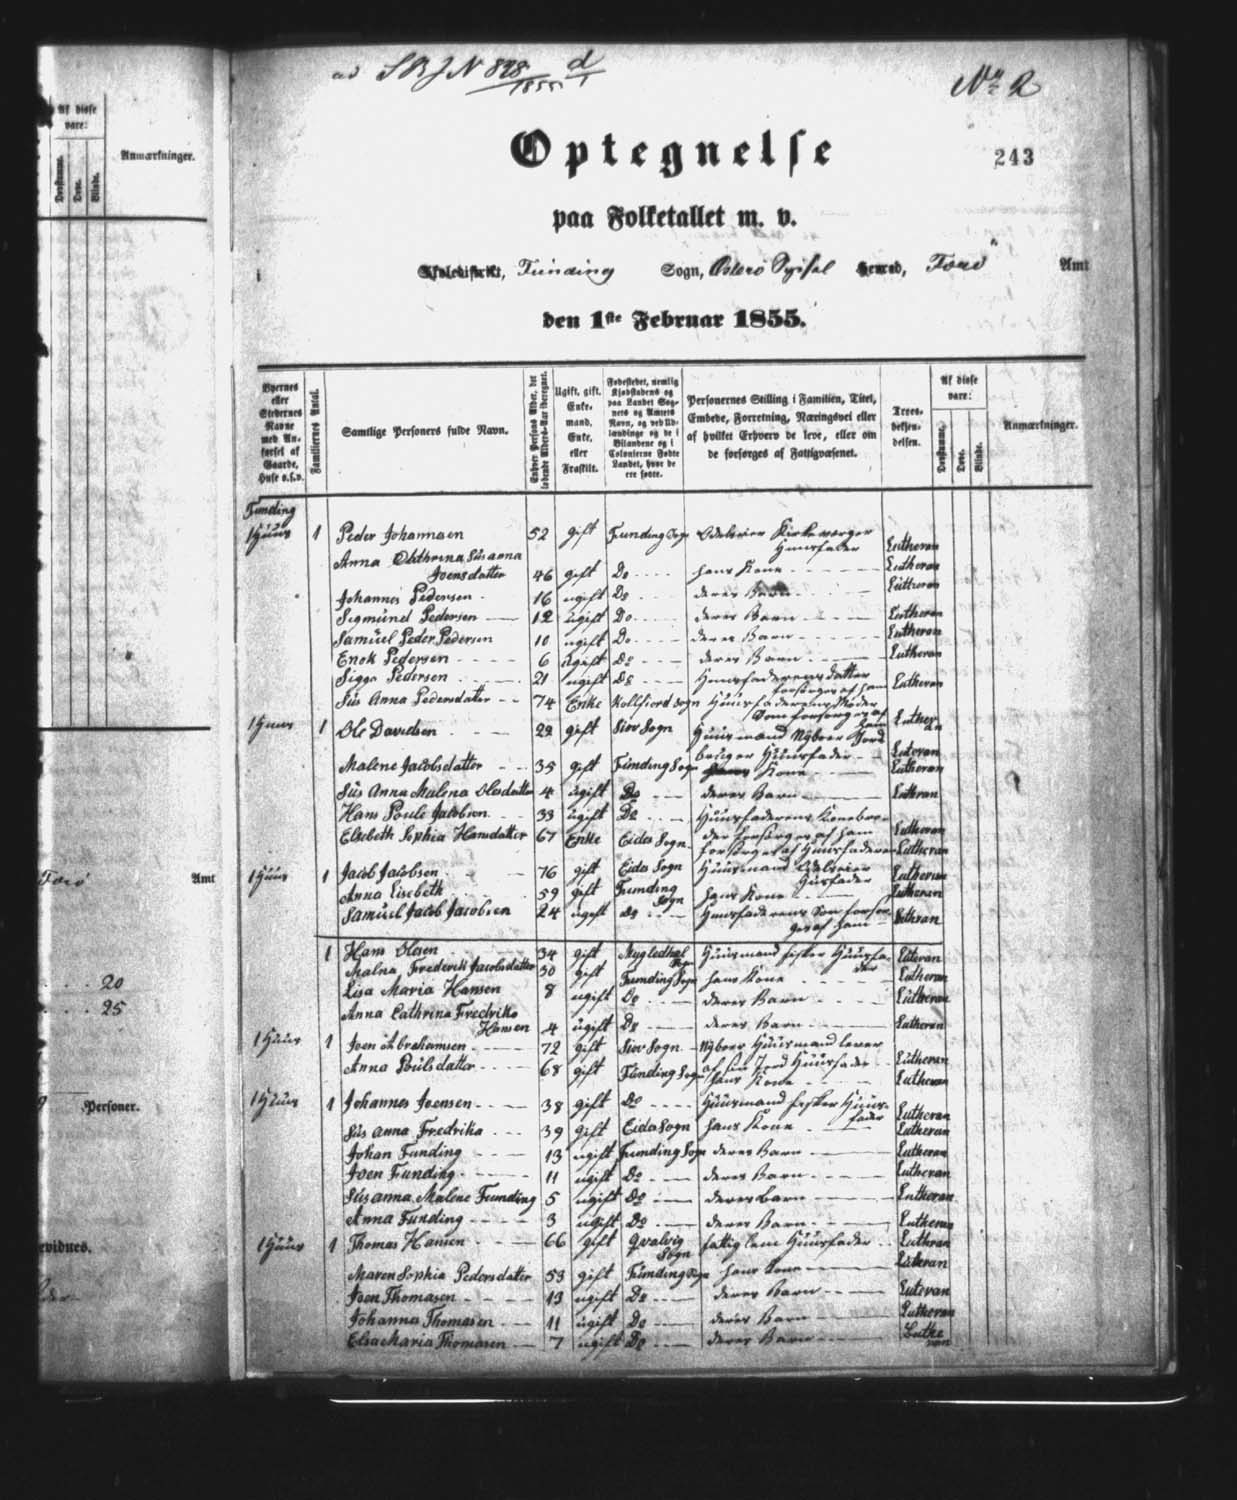 ad S R J N 898/1855 d/1
No 2
Optegnelse
243
paa Folketallet m. v.
Skoledistrikt, Funding Sogn, Østerø Syssel Herred, Færø Amt
den 1ste Februar 1855.
Af disse
vare:
Anmærkninger.
Døvstumme.
Døve.
Blinde.
Færø Amt
20
25
Personer.
Byernes eller Stedernes Navne med Anførsel af Gaarde, Huse o.s.v.
Familiernes Antal.
Samtlige Personers fulde Navn.
Enhver Persons Alder, det løbende Alders-Aar iberegnet.
Ugift, gift, Enkemand, Enke, eller Fraskilt.
Fødestedet, nemlig Kjøbstadens og paa Landet Sognets og Amtets Navn, og ved Udlændinge og de i Bilandene og i Colonierne Fødte Landet, hvor de ere fødte.
Personernes Stilling i Familien, Titel, Embede, Forretning, Næringsvei eller af hvilket Erhverv de leve, eller om de forsørges af Fattigvæsenet.
Troesbekjendelsen.
Af disse vare: Døvstumme. Døve. Blinde.
Anmærkninger.
Funding
1 Huus 1 Peder Johannsen 52 gift Funding Sogn Odelseier Kirkeværger
Huusfader Lutheran
Anna Cathrina Susanna
Joensdatter 46 gift Do hans Kone Lutheran
Johannes Pedersen 16 ugift Do deres Barn Lutheran
Sigmund Pedersen 12 ugift Do deres Barn Lutheran
Samuel Peder Pedersen 10 ugift Do deres Barn Lutheran
Enok Pedersen 6 ugift Do deres Barn Lutheran
Sigga Pedersen 21 ugift Do Huusfaderens datter
forsørges af ham Lutheran
Sus Anna Pedersdatter 74 Enke Kollfiord Sogn Huusfaderens Moder
Som forsørges af ham Lutheran
1 Huus 1 Ole Davidsen 29 gift Siov Sogn Huusmand Nyboer Jord
bruger Huusfader Luteran
Malene Jacobsdatter 35 gift Funding Sogn Kone Lutheran
Sus Anna Malena Olesdatter 4 ugift Do deres Barn Luthran
Hans Poule Jacobsen 33 ugift Do Huusfaderens Konebro-
der forsørges af ham Lutheran
Elsebeth Sophia Hansdatter 67 Enke Eide Sogn forsørges af Huusfaderen Lutheran
1 Huus 1 Jacob Jacobsen 76 gift Eide Sogn Huusmand Odelseier
Husfader Lutheran
Anna Lisebeth 59 gift Funding Sogn hans Kone Lutheran
Samuel Jacob Jacobsen 24 ugift Do Huusfaderens Søn forsør-
ges af ham Luthran
1 Hans Olesen 34 gift Sogn Huusmand fisker Huusfa-
der Luteran
Malna Frederik Jacobsdatter 30 gift Funding Sogn hans Kone Lutheran
Lisa Maria Hansen 8 ugift Do deres Barn Lutheran
Anna Cathrina Fredrika
Hansen 4 ugift Do deres Barn Lutheran
1 Huus 1 Joen Abrahamsen 72 gift Siov Sogn Nyboer Huusmand lever
af sin Jord Huusfader Lutheran
Anna Poulsdatter 68 gift Funding Sogn hans Kone Lutheran
1 Huus 1 Johannes Joensen 38 gift Do Huusmand fisker Huus-
fader Lutheran
Sus Anna Fredrika 39 gift Eide Sogn hans Kone Lutheran
Johan Funding 13 ugift Funding Sogn deres Barn Lutheran
Joen Funding 11 ugift Do deres Barn Lutheran
Susanna Malene Funding 5 ugift Do deres Barn Lutheran
Anna Funding 3 ugift Do deres Barn Lutheran
1 Huus 1 Thomas Hansen 66 gift Qvalvig
Sogn fattig lem Huusfader Luthran
Maren Sophia Pedersdatter 53 gift Funding Sogn hans Kone Luthran
Joen Thomasen 13 ugift Do deres Barn Luteran
Johanna Thomasen 11 ugift Do deres Barn Lutheran
Elsa Maria Thomasen 7 ugift Do deres Barn Luthe
ran